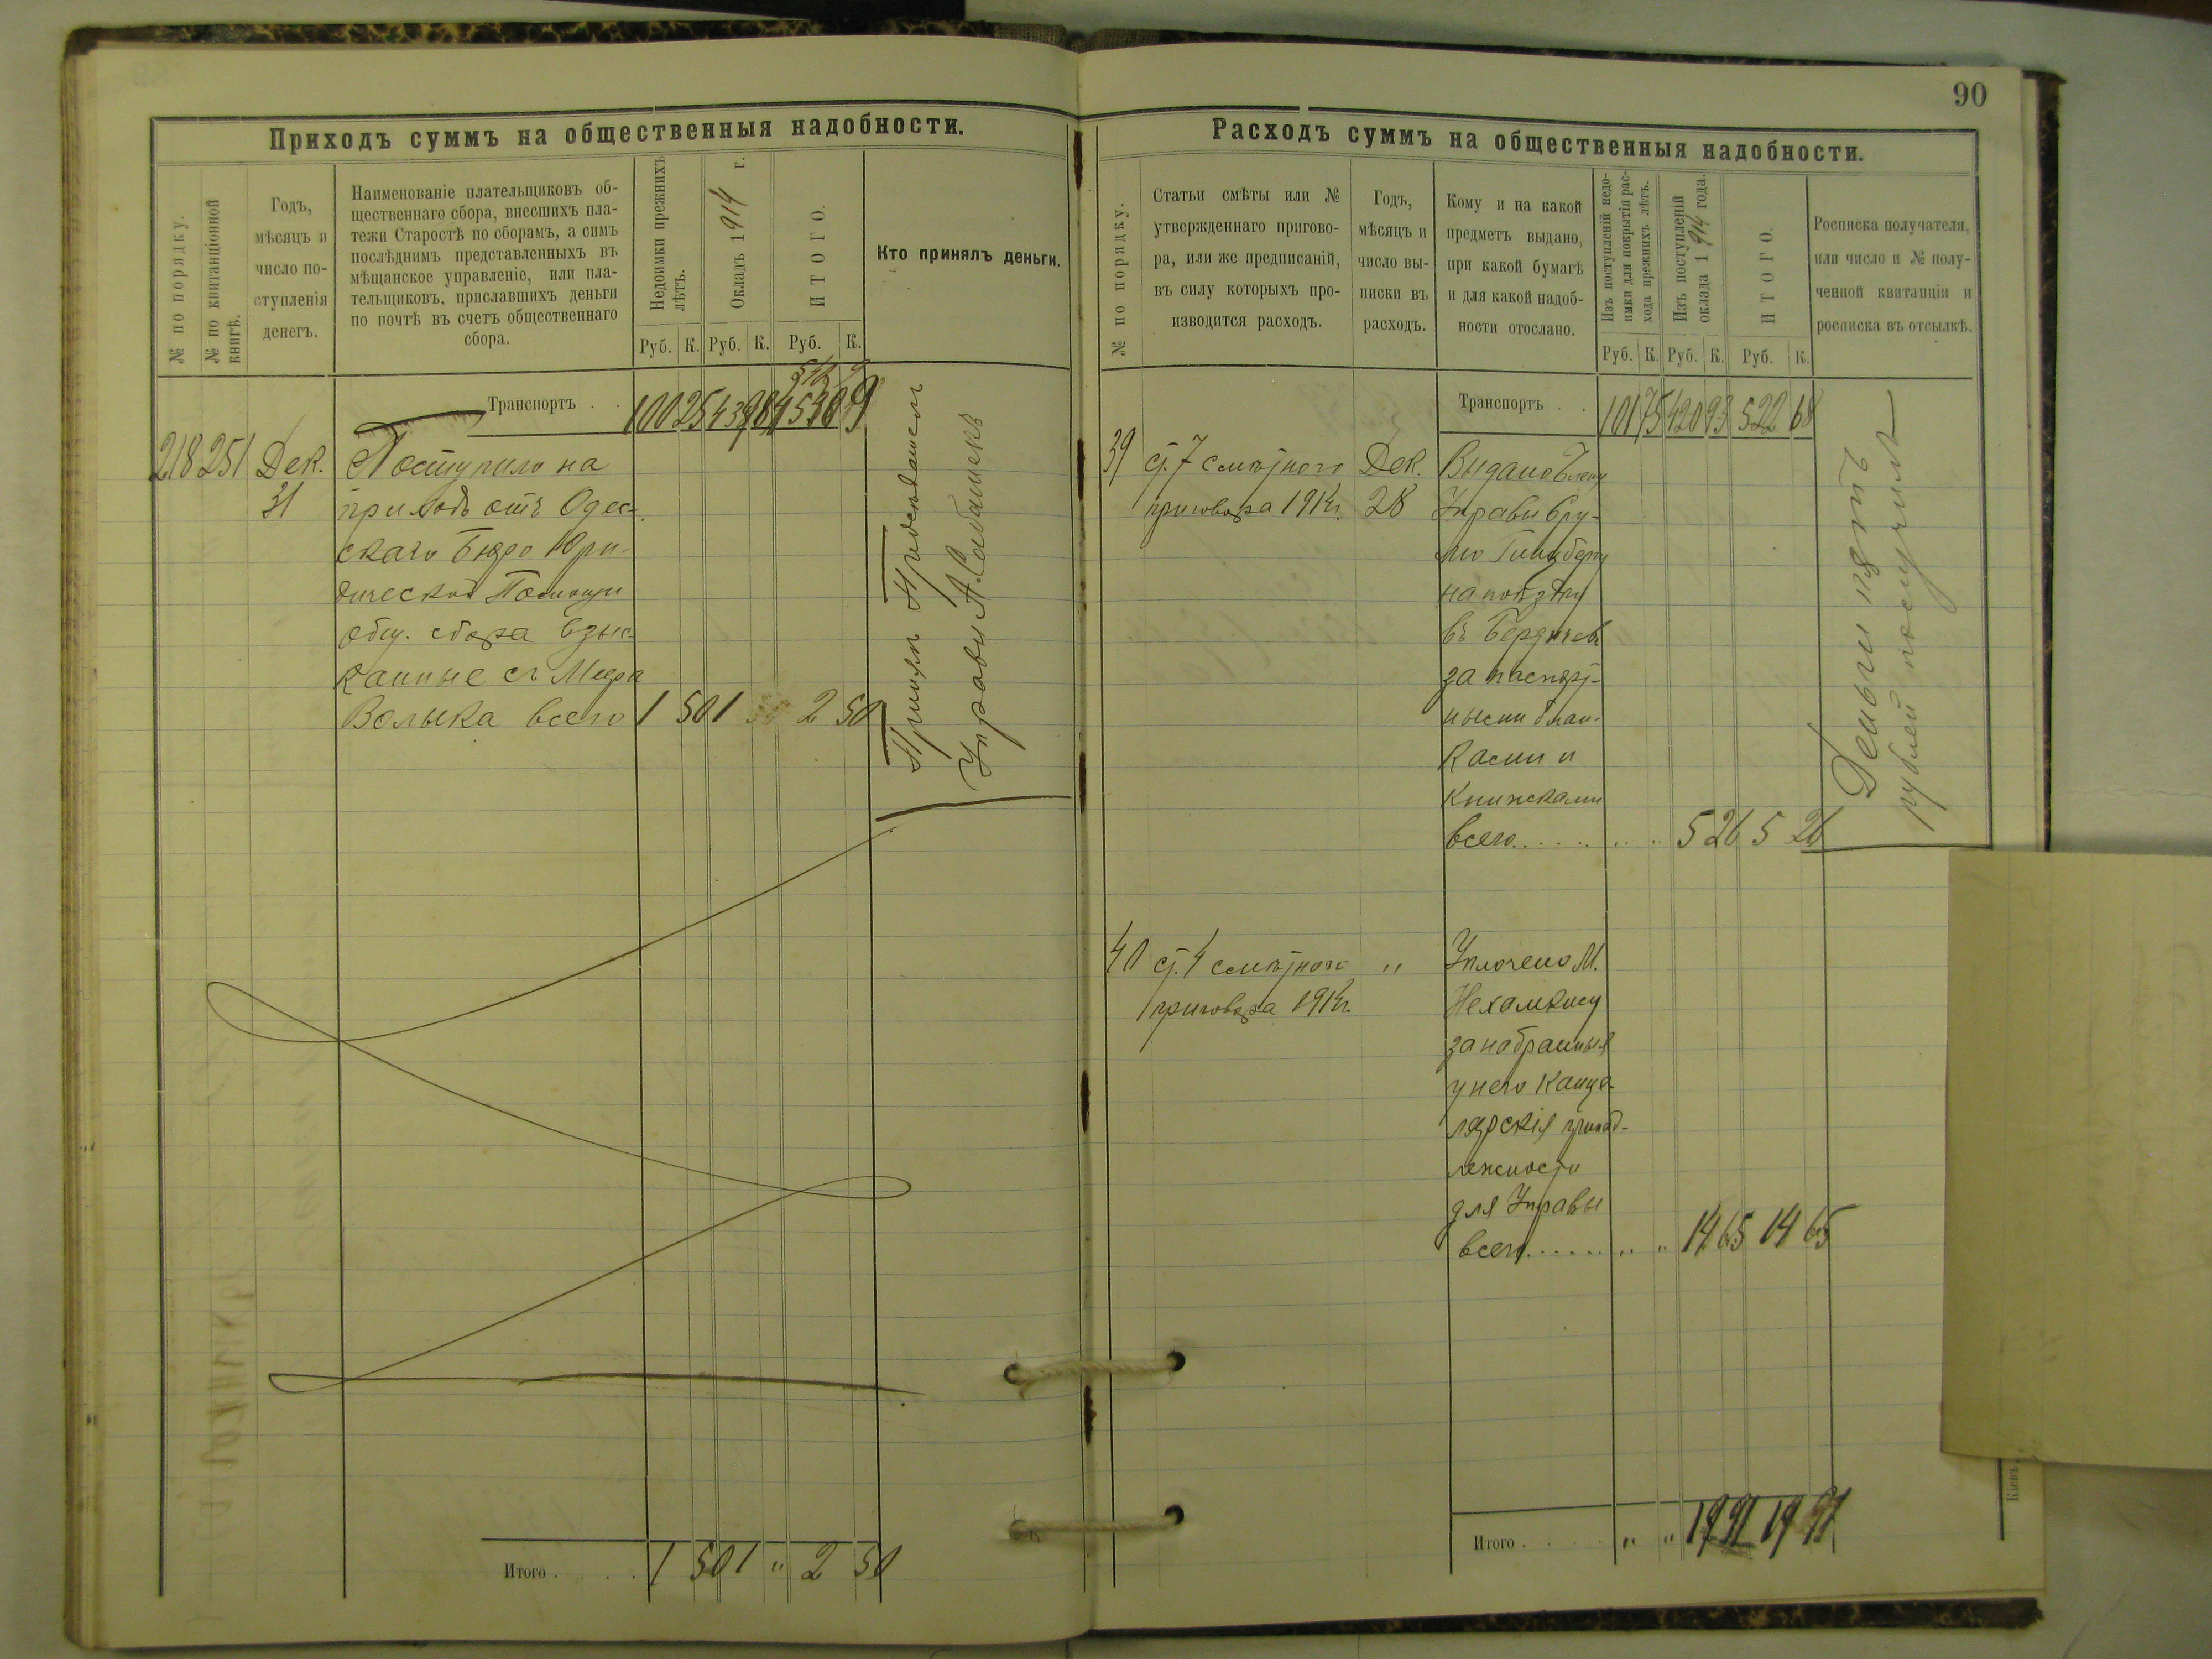 Приходъ суммъ на общественныя надобности.
№ по порядку.
№ по квитанціонной
книгѣ.
Годъ,
мѣсяцъ и
число по-
ступленія
денегъ.
Наименованіе плательщиковъ об-
щественнаго сбора, внесшихъ пла-
тежи Старостѣ по сборамъ, а симъ
послѣднимъ представленныхъ въ
мѣщанское управленіе, или пла-
тельщиковъ, приславшихъ деньги
по почтѣ въ счетъ общественнаго
сбора.
Недоимки прежнихъ
лѣтъ.
Окладъ 1914 г.
ИТОГО.
Кто принялъ деньги.
Руб. К. Руб. К. Руб. К.
Транспортъ . . 100 25 439 84
218 251 Дек. Поступило на
31 приходъ отъ Одес-
скаго Бюро Юри-
дической Помощи
общ. сбора взыс-
канные съ Меера
Волыка всего 1 50 1 2 50
Принялъ Предсѣдатель
Управы
Итого . . . . 1 50 1 " 2 50
90
Расходъ суммъ на общественныя надобности.
№ по порядку.
Статьи смѣты или №
утвержденнаго пригово-
ра, или же предписаній,
въ силу которыхъ про-
изводится расходъ.
Годъ,
мѣсяцъ и
число вы-
писки въ
расходъ.
Кому и на какой
предметъ выдано,
при какой бумагѣ
и для какой надоб-
ности отослано.
Изъ поступленій недо-
имки для покрытія рас-
хода прежнихъ лѣтъ.
Изъ поступленій
оклада 1914 года.
ИТОГО.
Росписка получателя,
или число и № полу-
ченной квитанціи и
росписка въ отсылкѣ.
Руб. К. Руб. К. Руб. К.
Транспортъ . . 101 75 420 93 522 68
39 ст. 7 смѣтного Дек. Выдано Члену
приговора 1914г. 28 Управы
Гинзбергу
на поѣздку
въ Бердичевъ
за паспорт-
ными блан-
ками и
книжками
всего . . . . . . 5 26 5 26
Деньги пять
рублей получилъ
40 ст. 4 смѣтного " Уплочено М.
приговора 1914г. Нехамкису
за набранныя
у него канце-
лярскія принад-
лежности
для Управы
всего . . . . . " " 14 65 14 65
Итого . . . . " " 19 91 19 91
Кіевъ,